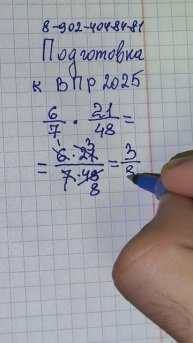 8-902-404-84-81
Подготовка
к ВПР 2025
6/7 · 21/48 =
= 6·21/7·48 = 3/8
1 3
8